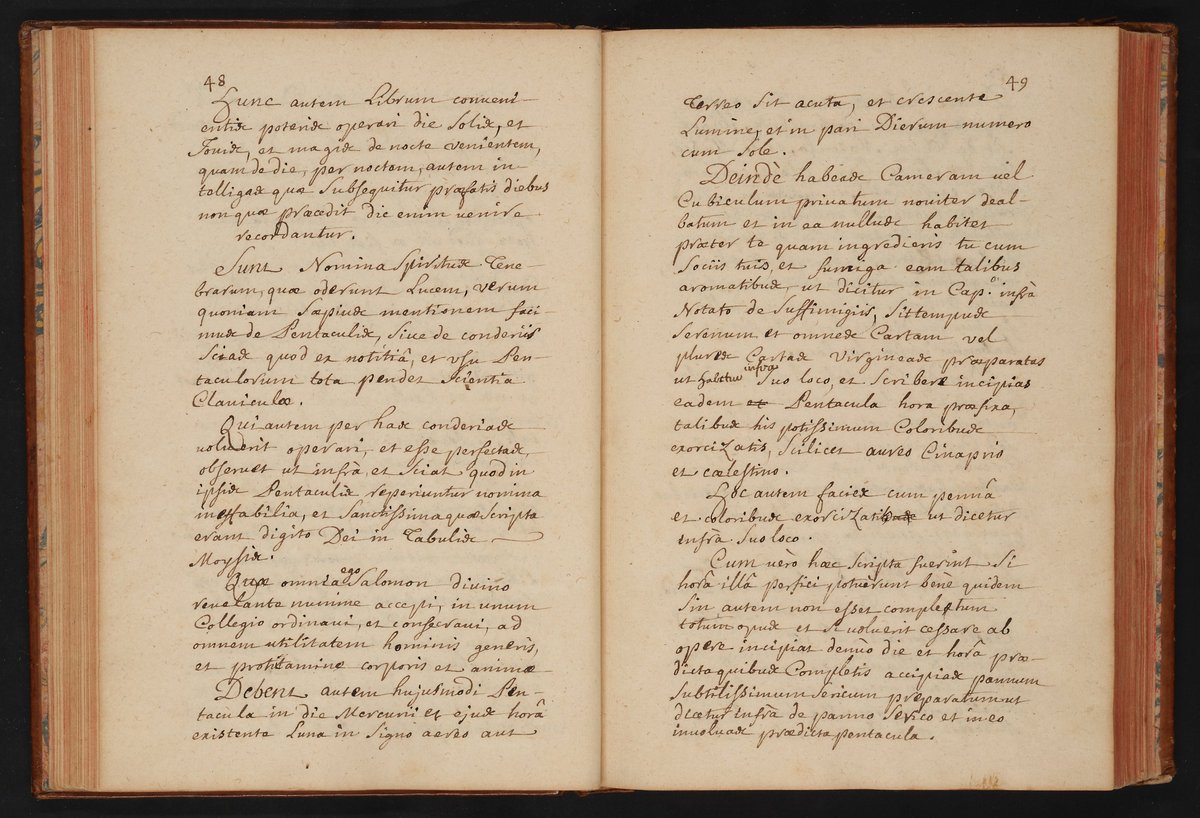 48
Hunc autem Librum conveni-
entis poteris operari die Solis, et
Iouis, et magis de nocte venientem,
quam de die, per noctem, autem in-
telligas quæ Subsequitur præfatis diebus
non quæ præcedit die enim venire
recordantur.
Sunt Nomina Spiritus Tene-
brarum, quæ oderunt Lucem, verum
quoniam Sæpius mentionem faci-
mus de Pentaculis, Siue de conderiis
Scias quod ex notitiâ, et vsu Pen-
taculorum tota pendet Scientia
Clauiculæ.
Qui autem per has conderias
voluerit operari, et esse perfectas,
observet ut infrà, et Sciat quod in
ipsis Pentaculis reperiuntur nomina
ineffabilia, et Sanctissima quæ Scripta
erant digito Dei in Tabulis
Moysis.
Quæ omnia ego Salomon divino
revelante numine accepi, in unum
Collegio ordinaui, et consecraui, ad
omnem utilitatem hominis generis,
et protitamine corporis et animæ
Debent autem hujusmodi Pen-
tacula in die Mercurii et ejus horâ
existente Luna in Signo aereo aut
49
Terreo Sit acuta, et crescente
Lumine, et in pari Dierum numero
cum Sole.
Deindè habeas Cameram vel
Cubiculum priuatum noviter deal-
batum et in ea nullus habitet
præter te quam ingrediens tu cum
Sociis tuis, et fumiga eam talibus
aromatibus, ut dicitur in Cap.º infrà
Notato de Suffimigiis, Sit tempus
Serenum, et omnes Cartam vel
plures Cartas Virgineas præparatas
ut habetur infra Suo loco, et Scribere incipias
eadem et Pentacula hora præfixa,
talibus his potissimum Coloribus
exorcizatis, Scilicet aureo Cinaprio
et cælestino.
Hoc autem facies cum pennâ
et coloribus exorcizatibus ut dicetur
infrà Suo loco.
Cum vèro hæc Scripta fuerint Si
horâ illâ perfici potuerunt bene quidem
Sin autem non esset completum
totum opus et Si voluerit cessare ab
opere incipiat denùo die et horâ præ-
dicta quibus Completis accipias pannum
Subtilissimum Sericum preparatum ut
dicetur infrà de panno Serico et in eo
involuas prædicta pentacula.